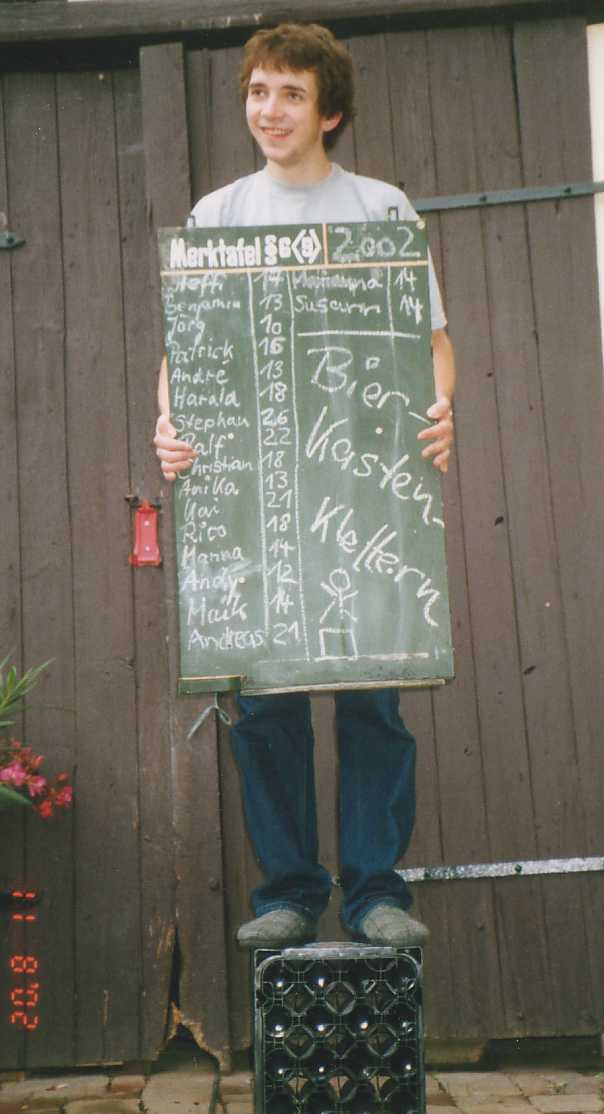 Merktafel § 6 (9) 2002
Steffi 14 Marianna 14
Benjamin 13 Susann 14
Jörg 10
Patrick 16
André 13
Harald 18
Stephan 26
Ralf 22
Christian 18
Anika 13
Kai 21
Rico 18
Hanna 14
Andy 12
Maik 14
Andreas 21
Bier-
Kasten-
Klettern
20.8 11